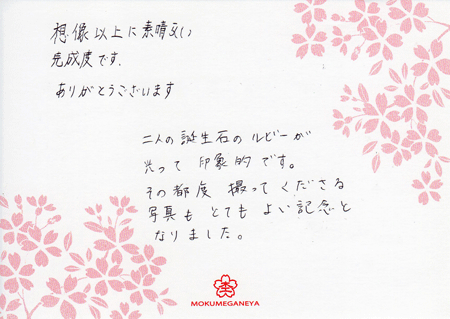 想像以上に素晴らしい
完成度です.
ありがとうございます
二人の誕生石のルビーが
光って 印象的です。
その都度 撮ってくださる
写真も とても よい記念と
なりました。
MOKUMEGANEYA